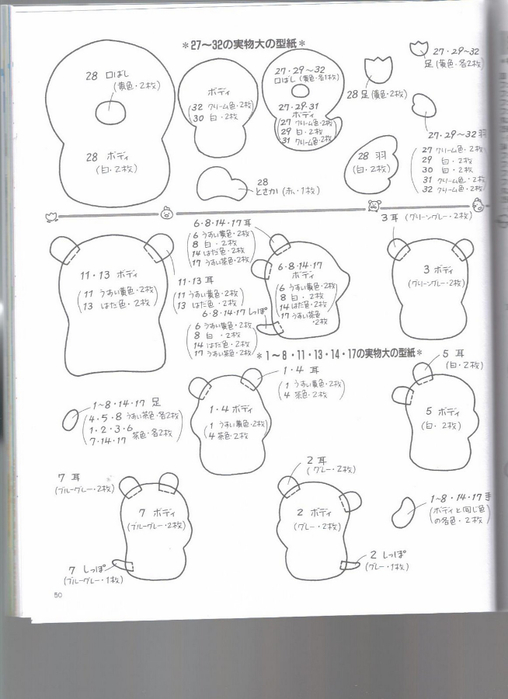 *27〜32の実物大の型紙*
28 口ばし
(黄色・2枚)
28 ボディ
(白・2枚)
ボディ
(32 クリーム色・2枚
30 白・2枚)
27・29〜32
口ばし(黄色・各1枚)
27・29・31
ボディ
(27 クリーム色・2枚
29 白・2枚
31 クリーム色・2枚)
28 足(黄色・2枚)
27・29〜32
足(黄色・各2枚)
28 羽
(白・2枚)
27・29〜32 羽
(27 クリーム色・2枚
29 白・2枚
30 白・2枚
31 クリーム色・2枚
32 クリーム色・2枚
28
とさか(赤・1枚)
6・8・14・17 耳
(6 うすい黄色・2枚
8 白・2枚
14 はだ色・2枚
17 うすい茶色・2枚)
3 耳(グリーングレー・2枚)
11・13 ボディ
(11 うすい黄色・2枚
13 はだ色・2枚)
11・13 耳
(11 うすい黄色・2枚
13 はだ色・2枚)
6・8・14・17 しっぽ
(6 うすい黄色・2枚
8 白・2枚
14 はだ色・2枚
17 うすい茶色・2枚)
6・8・14・17
ボディ
(6 うすい黄色・2枚
8 白・2枚
14 はだ色・2枚
17 うすい茶色
・2枚)
3 ボディ
(グリーングレー・2枚)
*1〜8・11・13・14・17の実物大の型紙*
1・4 耳
(1 うすい黄色・2枚
4 茶色・2枚)
5 耳
(白・2枚)
1〜8・14・17 足
(4・5・8 うすい茶色・各2枚
1・2・3・6
7・14・17 茶色・各2枚)
1・4 ボディ
(1 うすい黄色・2枚
4 茶色・2枚)
5 ボディ
(白・2枚)
7 耳
(ブルーグレー・2枚)
7 ボディ
(ブルーグレー・2枚)
7 しっぽ
(ブルーグレー・1枚)
2 耳
(グレー・2枚)
2 ボディ
(グレー・2枚)
2 しっぽ
(グレー・1枚)
1〜8・14・17 手
(ボディと同じ色
の各色・2枚)
80